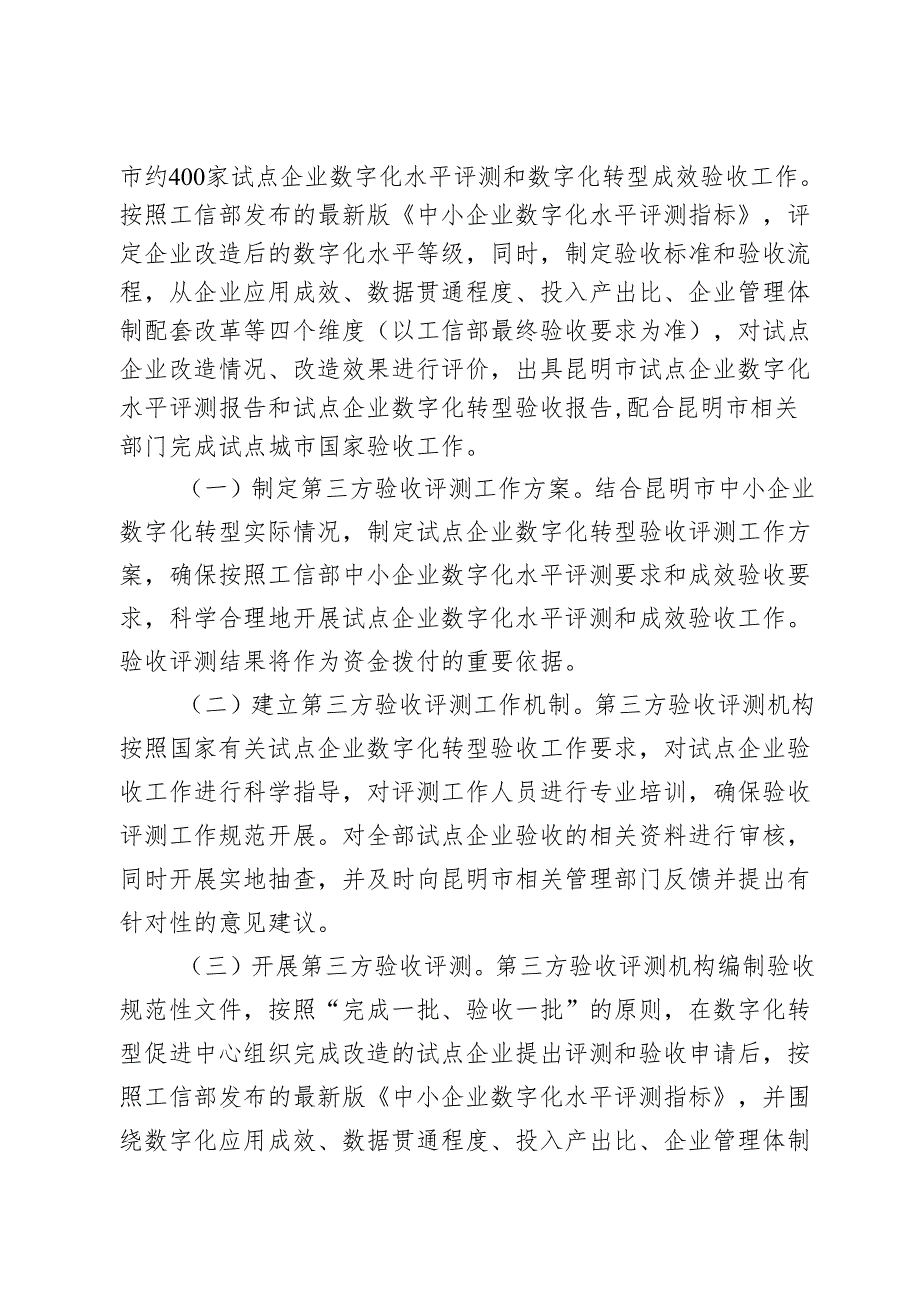 市约400家试点企业数字化水平评测和数字化转型成效验收工作。
按照工信部发布的最新版《中小企业数字化水平评测指标》，评
定企业改造后的数字化水平等级，同时，制定验收标准和验收流
程，从企业应用成效、数据贯通程度、投入产出比、企业管理体
制配套改革等四个维度（以工信部最终验收要求为准），对试点
企业改造情况、改造效果进行评价，出具昆明市试点企业数字化
水平评测报告和试点企业数字化转型验收报告,配合昆明市相关
部门完成试点城市国家验收工作。
（一）制定第三方验收评测工作方案。结合昆明市中小企业
数字化转型实际情况，制定试点企业数字化转型验收评测工作方
案，确保按照工信部中小企业数字化水平评测要求和成效验收要
求，科学合理地开展试点企业数字化水平评测和成效验收工作。
验收评测结果将作为资金拨付的重要依据。
（二）建立第三方验收评测工作机制。第三方验收评测机构
按照国家有关试点企业数字化转型验收工作要求，对试点企业验
收工作进行科学指导，对评测工作人员进行专业培训，确保验收
评测工作规范开展。对全部试点企业验收的相关资料进行审核，
同时开展实地抽查，并及时向昆明市相关管理部门反馈并提出有
针对性的意见建议。
（三）开展第三方验收评测。第三方验收评测机构编制验收
规范性文件，按照“完成一批、验收一批”的原则，在数字化转
型促进中心组织完成改造的试点企业提出评测和验收申请后，按
照工信部发布的最新版《中小企业数字化水平评测指标》，并围
绕数字化应用成效、数据贯通程度、投入产出比、企业管理体制